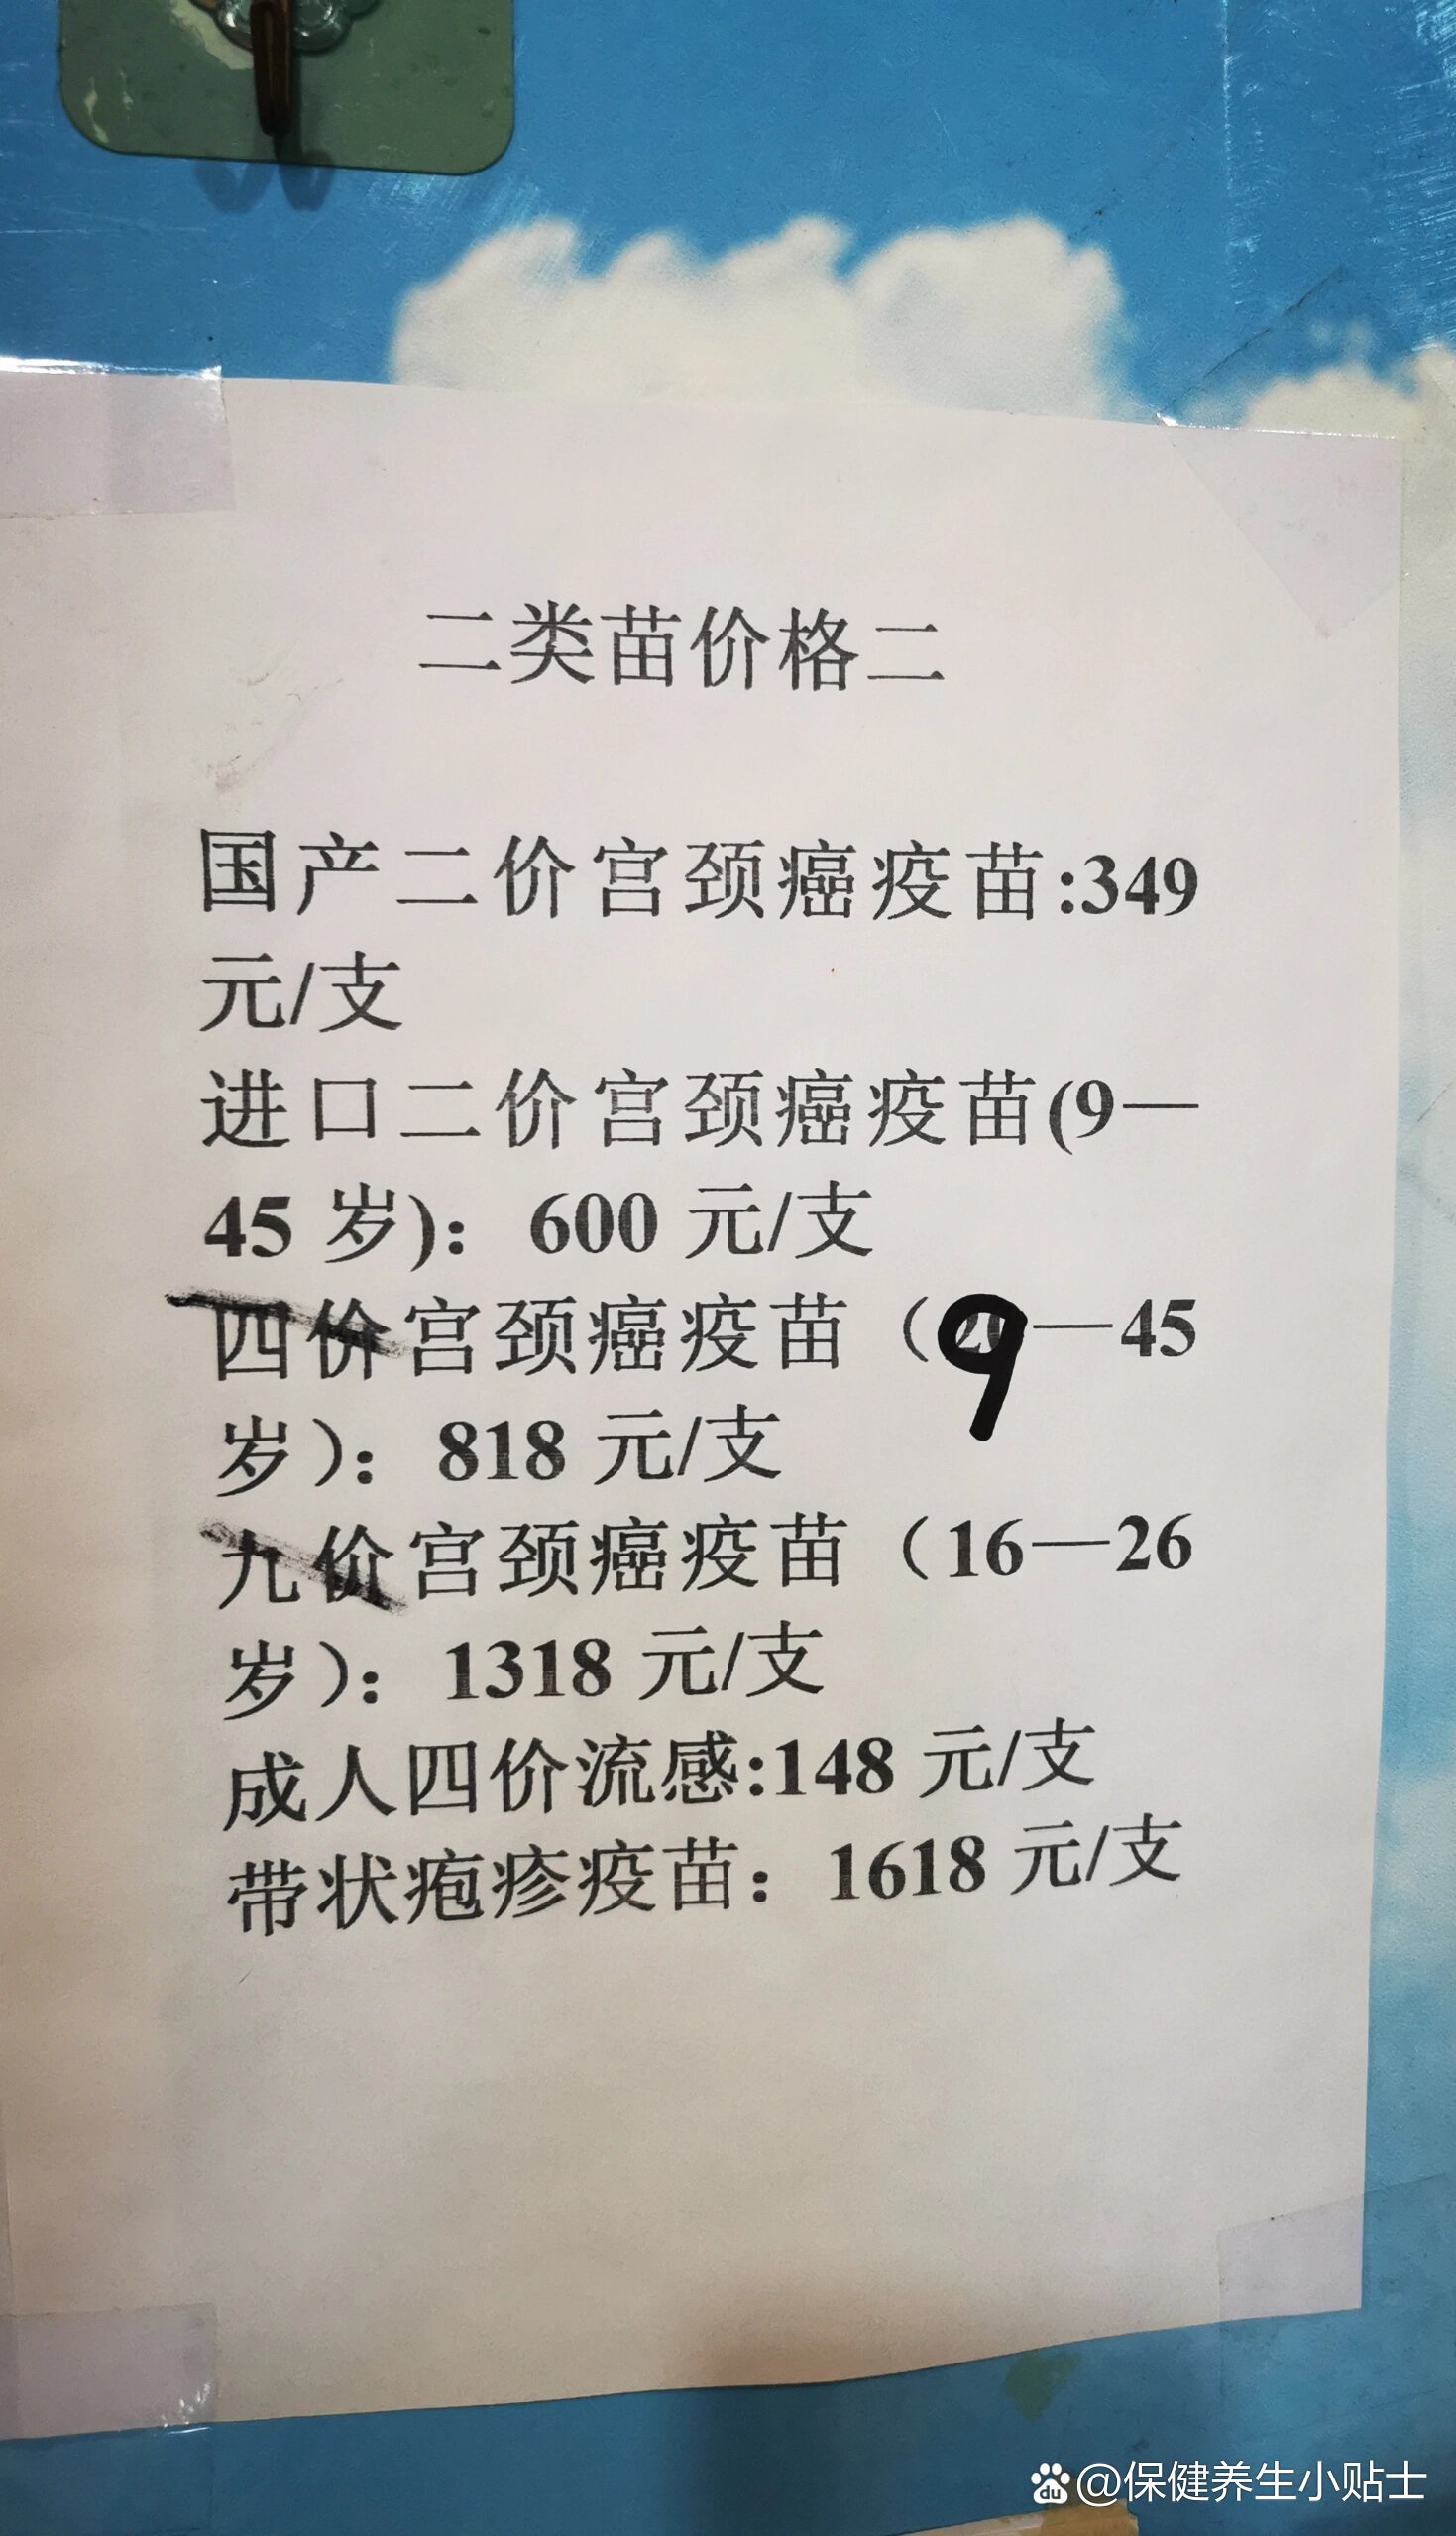 二类苗价格二
国产二价宫颈癌疫苗:349
元/支
进口二价宫颈癌疫苗(9—
45 岁): 600 元/支
四价宫颈癌疫苗（9—45
岁）: 818 元/支
九价宫颈癌疫苗（16—26
岁）: 1318 元/支
成人四价流感:148 元/支
带状疱疹疫苗: 1618 元/支
du @保健养生小贴士